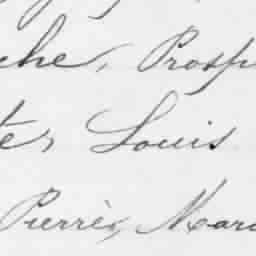 che, Prosp
te, Louis
Pierrès, Marc